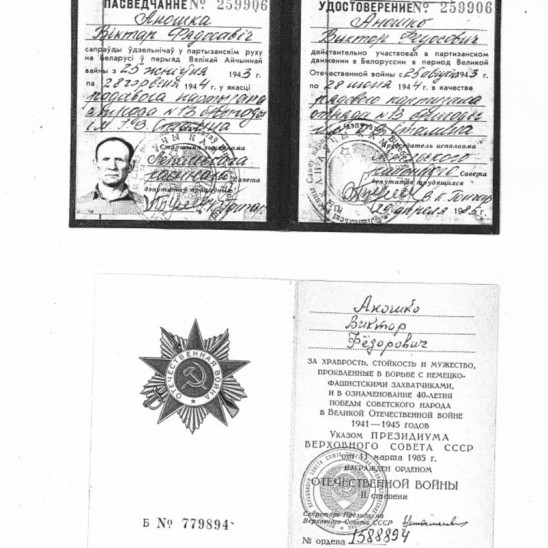 ПАСВЕДЧАННЕ № 259906
Аношка
Віктар Фёдаравіч
сапраўды ўдзельнічаў у партызанскім руху
на Беларусі ў перыяд Вялікай Айчыннай
вайны з 25 жніўня 1943 г.
па 28 чэрвеня 1944 г. у якасці
радавога партызана
атрада № 13
Старшыня выканкома
Савета
дэпутатаў працоўных
УДОСТОВЕРЕНИЕ № 259906
Аношко
Виктор Федосович
действительно участвовал в партизанском
движении в Белоруссии в период Великой
Отечественной войны с 25 августа 1943 г.
по 28 июня 1944 г. в качестве
рядового партизана
отряда № 13
им. Сталина
Председатель исполкома
районного Совета
депутатов трудящихся
апреля 198
Аношко
Виктор
Фёдорович
ЗА ХРАБРОСТЬ, СТОЙКОСТЬ И МУЖЕСТВО,
ПРОЯВЛЕННЫЕ В БОРЬБЕ С НЕМЕЦКО-
ФАШИСТСКИМИ ЗАХВАТЧИКАМИ,
И В ОЗНАМЕНОВАНИЕ 40-ЛЕТИЯ
ПОБЕДЫ СОВЕТСКОГО НАРОДА
В ВЕЛИКОЙ ОТЕЧЕСТВЕННОЙ ВОЙНЕ
1941—1945 ГОДОВ
УКАЗОМ ПРЕЗИДИУМА
ВЕРХОВНОГО СОВЕТА СССР
от 11 марта 1985 г.
НАГРАЖДЕН ОРДЕНОМ
ОТЕЧЕСТВЕННОЙ ВОЙНЫ
II степени
Секретарь Президиума
Верховного Совета СССР
№ ордена 1588894
ОТЕЧЕСТВЕННАЯ ВОЙНА
Б № 779894